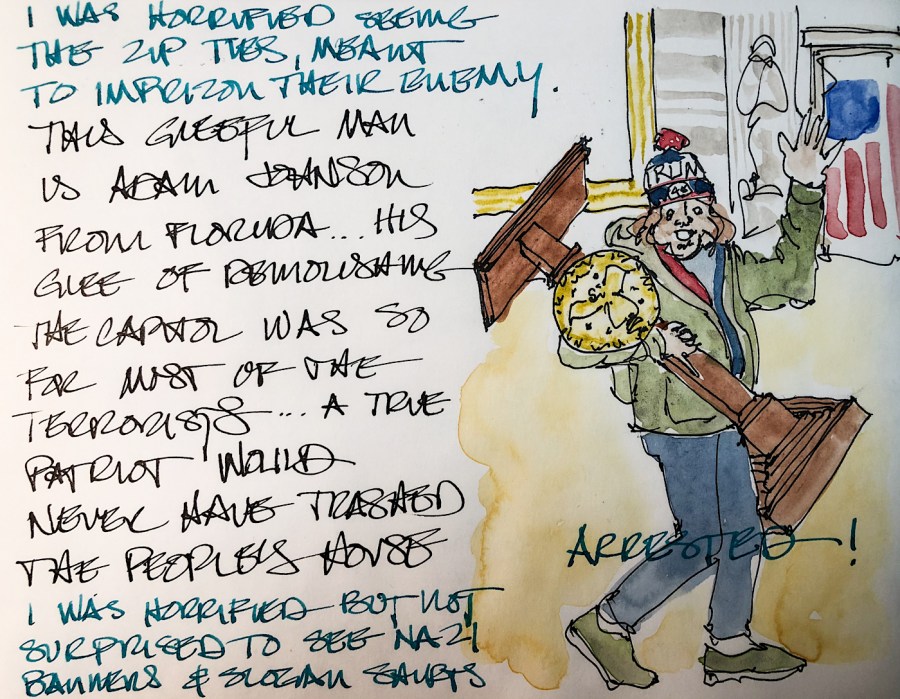 I WAS HORRIFIED SEEING
THE ZIP TIES, MEANT
TO IMPRIZON THEIR ENEMY.
THIS GLEEFUL MAN
IS ADAM JOHNSON
FROM FLORIDA... HIS
GLEE OF DEMOLISHING
THE CAPITOL WAS SO
FOR MOST OF THE
TERRORISTS... A TRUE
PATRIOT WOULD
NEVER HAVE TRASHED
THE PEOPLE'S HOUSE
I WAS HORRIFIED BUT NOT
SURPRISED TO SEE NAZI
BANNERS & SLOGAN SHIRTS
ARRESTED!